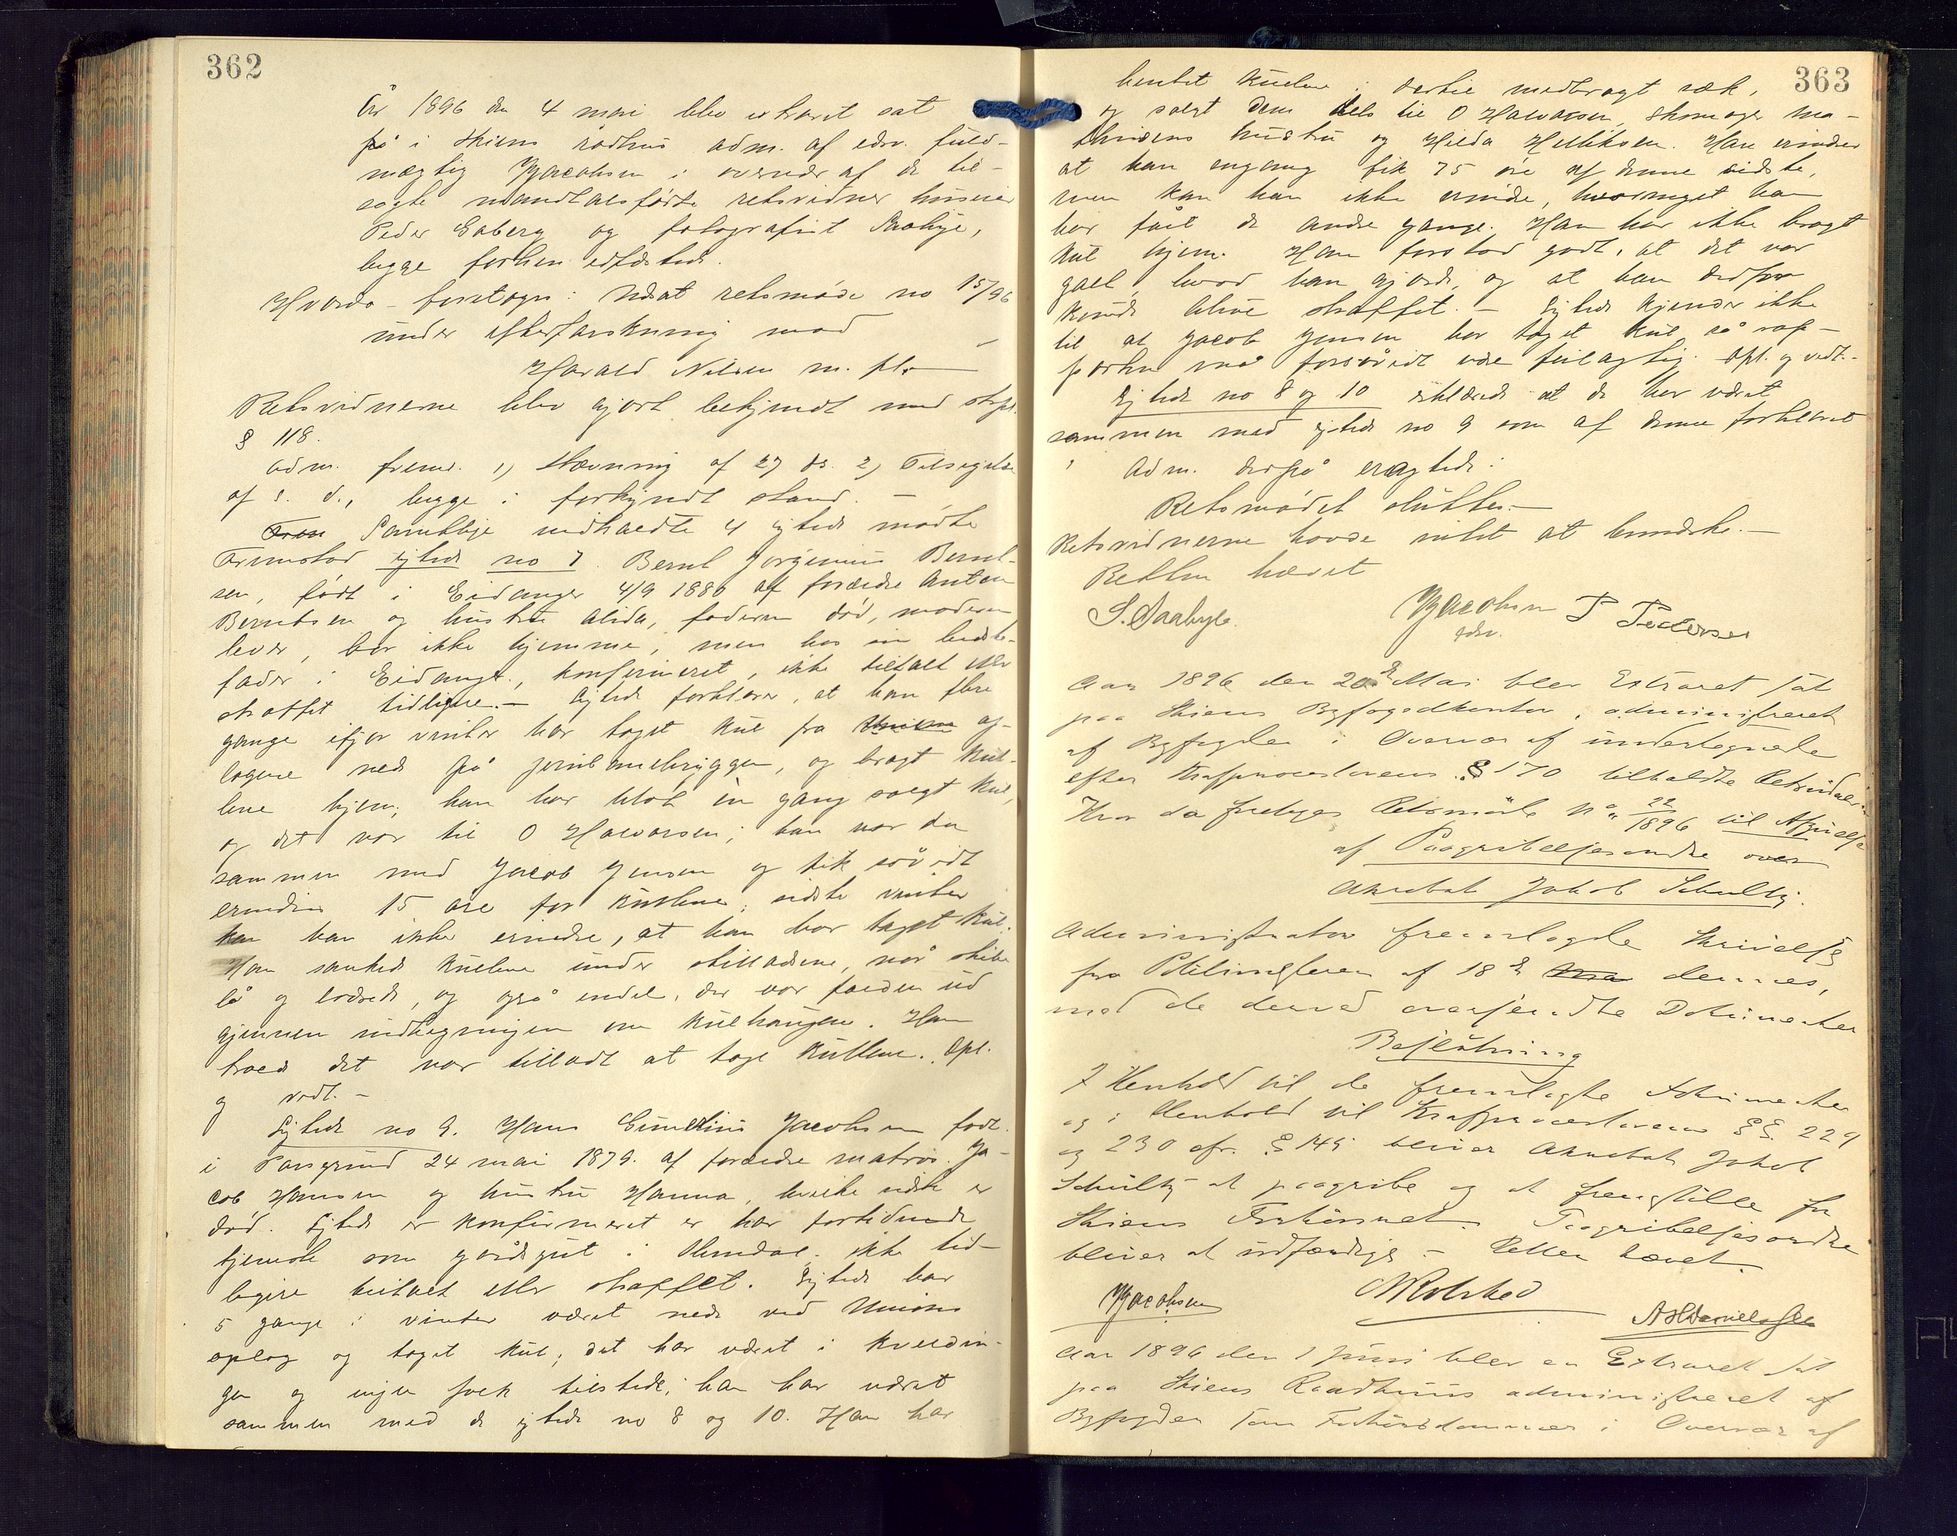 362
År 1896 den 4 mai blev extraret sat
på i Skiens rådhus adm. af edsv. fuld-
mægtig Jacobsen i overvær af de til-
sagte udvalgsførte retsvidner
Peder Enberg og fotograf Saabye,
begge forhen edfæstede.
Hvorda foretoges: Udsat retsmøde no 15/96
under efterforskning mod
Harald Nilsen m. fl.
Retsvidnerne blev gjort bekjendt med
§ 118.
Adm. freml. 1) Stævning af 27 ds. 2) Tilsigelse
af s. d., begge i forkyndt stand. —
Samtlige indkaldte 4 sigtede mødte
Fremstod sigtede no 7. Bernt Jørginius Bernt-
sen, født i Eidanger 4/9 1880 af forældre Anton
Berntsen og hustru Alida, faderen død, moderen
lever, bor ikke hjemme, men hos en bedste-
fader i Eidanger, konfirmeret, ikke tiltalt eller
straffet tidligere. — Sigtede forklarer, at han flere
gange ifjor vinter har taget kul fra Union op-
lagene nede på jernbanebryggen, og bragt kul-
lene hjem; han har blot én gang solgt kul,
og det var til O Halvorsen; han var da
sammen med Jacob Jensen og fik såvidt
erindres 15 øre for kullene; sidste vinter
kan han ikke erindre, at han har taget kul.
Han sankede kullene under stilladsene, når skibe
lå og lossede, og også endel, der var falden ud
gjennem indhegningen om kulhaugen. Han
troede det var tilladt at tage kullene. Opl.
og vedt. —
Sigtede no 9. Hans Jacobsen født
i Porsgrund 24 mai 1879. af forældre matros Ja-
cob Hansen og hustru Hanna, hvilke sidste er
død. Sigtede er konfirmeret er har fortiden
tjeneste som gårdsgut i ikke tid-
ligere tiltalt eller straffet. Sigtede har
5 gange i vinter været nede ved Unions
oplag og taget kul; det har været i kveldin-
gen og ingen folk tilstede; han har været
sammen med de sigtede no 8 og 10. Han har
363
hentet kullene i dertil medbragt sæk,
og solgt dem dels til O Halvorsen, skomager Ma-
thisens hustru og Hilda Han erindrer
at han engang fik 75 øre af denne sidste,
men kan han ikke erindre, hvormeget han
har fåt de andre gange. Han har ikke bragt
kul hjem. Han forstod godt, at det var
galt, hvad han gjorde, og at han derfor
kunde blive straffet. — Sigtede kjender ikke
til at Jacob Jensen har taget kul, så rap-
porten må forsåvidt være feilagtig. Opl. og vedt. —
Sigtede no 8 og 10 erklærede at de har været
sammen med sigtede no 9 som af denne forklaret
Adm. derpå eragtede:
Retsmødet sluttes. —
Retsvidnerne havde intet at bemærke. —
Retten hævet
S. Saabye. Jacobsen P Pedersen
edsv.
Aar 1896 den 20de Mai blev Extraret sat
paa Skiens Byfogedkontor, administreret
af Byfogden i Overvær af undertegnede
efter Strafprocesloven § 170 tilkaldte Retsvidner
Hvor da foretoges Retsmøde No 22/1896 til Afsigelse
af Paagribelsesordre over
Jakob Schultz.
Administrator fremlagde Skrivelse
fra Politimesteren af 18de dennes,
med de derved oversendte Dokumenter
Beslutning
I Henhold til de fremlagte Dokumenter
og i Henhold til Strafprocesloven §§ 229
og 230 cfr. § 149 bliver Jakob
Schultz at paagribe og at fremstille for
Skiens Forhørsret. Paagribelsesordre
bliver at udfærdige — Retten hævet.
Jacobsen
Aar 1896 den 1 Juni blev en Extraret sat
paa Skiens Raadhuus administreret af
Byfogden som Forhørsdommer i Overvær af